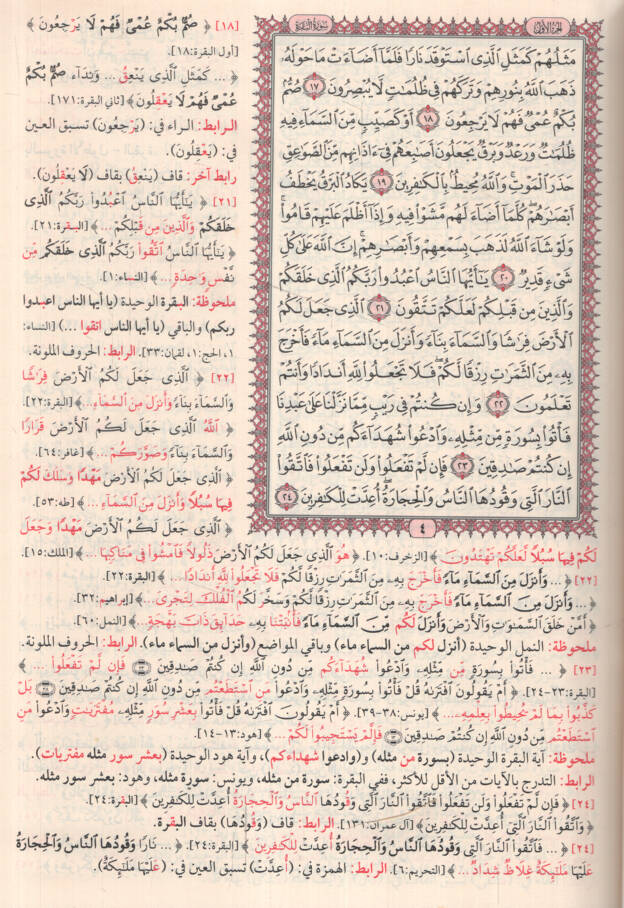 الجزء الأول
سورة البقرة
مَثَلُهُمْ كَمَثَلِ ٱلَّذِى ٱسْتَوْقَدَ نَارًا فَلَمَّآ أَضَآءَتْ مَا حَوْلَهُۥ
ذَهَبَ ٱللَّهُ بِنُورِهِمْ وَتَرَكَهُمْ فِى ظُلُمَٰتٍ لَّا يُبْصِرُونَ ١٧ صُمٌّۢ
بُكْمٌ عُمْىٌ فَهُمْ لَا يَرْجِعُونَ ١٨ أَوْ كَصَيِّبٍ مِّنَ ٱلسَّمَآءِ فِيهِ
ظُلُمَٰتٌ وَرَعْدٌ وَبَرْقٌ يَجْعَلُونَ أَصَٰبِعَهُمْ فِىٓ ءَاذَانِهِم مِّنَ ٱلصَّوَٰعِقِ
حَذَرَ ٱلْمَوْتِ ۚ وَٱللَّهُ مُحِيطٌۢ بِٱلْكَٰفِرِينَ ١٩ يَكَادُ ٱلْبَرْقُ يَخْطَفُ
أَبْصَٰرَهُمْ ۖ كُلَّمَآ أَضَآءَ لَهُم مَّشَوْا۟ فِيهِ وَإِذَآ أَظْلَمَ عَلَيْهِمْ قَامُوا۟ ۚ
وَلَوْ شَآءَ ٱللَّهُ لَذَهَبَ بِسَمْعِهِمْ وَأَبْصَٰرِهِمْ ۚ إِنَّ ٱللَّهَ عَلَىٰ كُلِّ
شَىْءٍ قَدِيرٌ ٢٠ يَٰٓأَيُّهَا ٱلنَّاسُ ٱعْبُدُوا۟ رَبَّكُمُ ٱلَّذِى خَلَقَكُمْ
وَٱلَّذِينَ مِن قَبْلِكُمْ لَعَلَّكُمْ تَتَّقُونَ ٢١ ٱلَّذِى جَعَلَ لَكُمُ
ٱلْأَرْضَ فِرَٰشًا وَٱلسَّمَآءَ بِنَآءً وَأَنزَلَ مِنَ ٱلسَّمَآءِ مَآءً فَأَخْرَجَ
بِهِۦ مِنَ ٱلثَّمَرَٰتِ رِزْقًا لَّكُمْ ۖ فَلَا تَجْعَلُوا۟ لِلَّهِ أَندَادًا وَأَنتُمْ
تَعْلَمُونَ ٢٢ وَإِن كُنتُمْ فِى رَيْبٍ مِّمَّا نَزَّلْنَا عَلَىٰ عَبْدِنَا
فَأْتُوا۟ بِسُورَةٍ مِّن مِّثْلِهِۦ وَٱدْعُوا۟ شُهَدَآءَكُم مِّن دُونِ ٱللَّهِ
إِن كُنتُمْ صَٰدِقِينَ ٢٣ فَإِن لَّمْ تَفْعَلُوا۟ وَلَن تَفْعَلُوا۟ فَٱتَّقُوا۟
ٱلنَّارَ ٱلَّتِى وَقُودُهَا ٱلنَّاسُ وَٱلْحِجَارَةُ ۖ أُعِدَّتْ لِلْكَٰفِرِينَ ٢٤
٤
[١٨] ﴿ صُمٌّۢ بُكْمٌ عُمْىٌ فَهُمْ لَا يَرْجِعُونَ ﴾
[أول البقرة:١٨].
﴿ ... كَمَثَلِ ٱلَّذِى يَنْعِقُ ... وَنِدَآءً صُمٌّۢ بُكْمٌ
عُمْىٌ فَهُمْ لَا يَعْقِلُونَ ﴾ [ثاني البقرة:١٧١].
الرابط: الراء في: (يَرْجِعُونَ) تسبق العين
في: (يَعْقِلُونَ).
رابط آخر: قاف (يَنْعِقُ) بقاف (لَا يَعْقِلُونَ).
[٢١] ﴿ يَٰٓأَيُّهَا ٱلنَّاسُ ٱعْبُدُوا۟ رَبَّكُمُ ٱلَّذِى
خَلَقَكُمْ وَٱلَّذِينَ مِن قَبْلِكُمْ ... ﴾ [البقرة:٢١].
﴿ يَٰٓأَيُّهَا ٱلنَّاسُ ٱتَّقُوا۟ رَبَّكُمُ ٱلَّذِى خَلَقَكُم مِّن
نَّفْسٍ وَٰحِدَةٍ ... ﴾ [النساء:١].
ملحوظة: البقرة الوحيدة (يا أيها الناس اعبدوا
ربكم) والباقي (يا أيها الناس اتقوا ...) [النساء:
١، الحج:١، لقمان:٣٣]. الرابط: الحروف الملونة.
[٢٢] ﴿ ٱلَّذِى جَعَلَ لَكُمُ ٱلْأَرْضَ فِرَٰشًا
وَٱلسَّمَآءَ بِنَآءً وَأَنزَلَ مِنَ ٱلسَّمَآءِ ... ﴾ [البقرة:٢٢].
﴿ ٱللَّهُ ٱلَّذِى جَعَلَ لَكُمُ ٱلْأَرْضَ قَرَارًا
وَٱلسَّمَآءَ بِنَآءً وَصَوَّرَكُمْ ... ﴾ [غافر:٦٤].
﴿ ٱلَّذِى جَعَلَ لَكُمُ ٱلْأَرْضَ مَهْدًا وَسَلَكَ لَكُمْ
فِيهَا سُبُلًا وَأَنزَلَ مِنَ ٱلسَّمَآءِ ... ﴾ [طه:٥٣].
﴿ ٱلَّذِى جَعَلَ لَكُمُ ٱلْأَرْضَ مَهْدًا وَجَعَلَ
لَكُمْ فِيهَا سُبُلًا لَّعَلَّكُمْ تَهْتَدُونَ ﴾ [الزخرف:١٠]. ﴿ هُوَ ٱلَّذِى جَعَلَ لَكُمُ ٱلْأَرْضَ ذَلُولًا فَٱمْشُوا۟ فِى مَنَاكِبِهَا ... ﴾ [الملك:١٥].
[٢٢] ﴿ ... وَأَنزَلَ مِنَ ٱلسَّمَآءِ مَآءً فَأَخْرَجَ بِهِۦ مِنَ ٱلثَّمَرَٰتِ رِزْقًا لَّكُمْ فَلَا تَجْعَلُوا۟ لِلَّهِ أَندَادًا ... ﴾ [البقرة:٢٢].
﴿ ... وَأَنزَلَ مِنَ ٱلسَّمَآءِ مَآءً فَأَخْرَجَ بِهِۦ مِنَ ٱلثَّمَرَٰتِ رِزْقًا لَّكُمْ وَسَخَّرَ لَكُمُ ٱلْفُلْكَ لِتَجْرِىَ ... ﴾ [إبراهيم:٣٢].
﴿ أَمَّنْ خَلَقَ ٱلسَّمَٰوَٰتِ وَٱلْأَرْضَ وَأَنزَلَ لَكُم مِّنَ ٱلسَّمَآءِ مَآءً فَأَنۢبَتْنَا بِهِۦ حَدَآئِقَ ذَاتَ بَهْجَةٍ ... ﴾ [النمل:٦٠].
ملحوظة: النمل الوحيدة (أنزل لكم من السماء ماء) وباقي المواضع (وأنزل من السماء ماء). الرابط: الحروف الملونة.
[٢٣] ﴿ ... فَأْتُوا۟ بِسُورَةٍ مِّن مِّثْلِهِۦ وَٱدْعُوا۟ شُهَدَآءَكُم مِّن دُونِ ٱللَّهِ إِن كُنتُمْ صَٰدِقِينَ ٢٣ فَإِن لَّمْ تَفْعَلُوا۟ ... ﴾
[البقرة:٢٣-٢٤]. ﴿ أَمْ يَقُولُونَ ٱفْتَرَىٰهُ قُلْ فَأْتُوا۟ بِسُورَةٍ مِّثْلِهِۦ وَٱدْعُوا۟ مَنِ ٱسْتَطَعْتُم مِّن دُونِ ٱللَّهِ إِن كُنتُمْ صَٰدِقِينَ ٣٨ بَلْ
كَذَّبُوا۟ بِمَا لَمْ يُحِيطُوا۟ بِعِلْمِهِۦ ... ﴾ [يونس:٣٨-٣٩]. ﴿ أَمْ يَقُولُونَ ٱفْتَرَىٰهُ قُلْ فَأْتُوا۟ بِعَشْرِ سُوَرٍ مِّثْلِهِۦ مُفْتَرَيَٰتٍ وَٱدْعُوا۟ مَنِ
ٱسْتَطَعْتُم مِّن دُونِ ٱللَّهِ إِن كُنتُمْ صَٰدِقِينَ ١٣ فَإِلَّمْ يَسْتَجِيبُوا۟ لَكُمْ ... ﴾ [هود:١٣-١٤].
ملحوظة: آية البقرة الوحيدة (بسورة من مثله) و(وادعوا شهداءكم)، وآية هود الوحيدة (بعشر سور مثله مفتريات).
الرابط: التدرج بالآيات من الأقل للأكثر، ففي البقرة: سورة من مثله، ويونس: سورة مثله، وهود: بعشر سور مثله.
[٢٤] ﴿ فَإِن لَّمْ تَفْعَلُوا۟ وَلَن تَفْعَلُوا۟ فَٱتَّقُوا۟ ٱلنَّارَ ٱلَّتِى وَقُودُهَا ٱلنَّاسُ وَٱلْحِجَارَةُ أُعِدَّتْ لِلْكَٰفِرِينَ ﴾ [البقرة:٢٤].
﴿ وَٱتَّقُوا۟ ٱلنَّارَ ٱلَّتِىٓ أُعِدَّتْ لِلْكَٰفِرِينَ ﴾ [آل عمران:١٣١]. الرابط: قاف (وَقُودُهَا) بقاف البقرة.
[٢٤] ﴿ ... فَٱتَّقُوا۟ ٱلنَّارَ ٱلَّتِى وَقُودُهَا ٱلنَّاسُ وَٱلْحِجَارَةُ أُعِدَّتْ لِلْكَٰفِرِينَ ﴾ [البقرة:٢٤]. ﴿ ... نَارًا وَقُودُهَا ٱلنَّاسُ وَٱلْحِجَارَةُ
عَلَيْهَا مَلَٰٓئِكَةٌ غِلَاظٌ شِدَادٌ ... ﴾ [التحريم:٦]. الرابط: الهمزة في: (أُعِدَّتْ) تسبق العين في: (عَلَيْهَا مَلَٰٓئِكَةٌ).